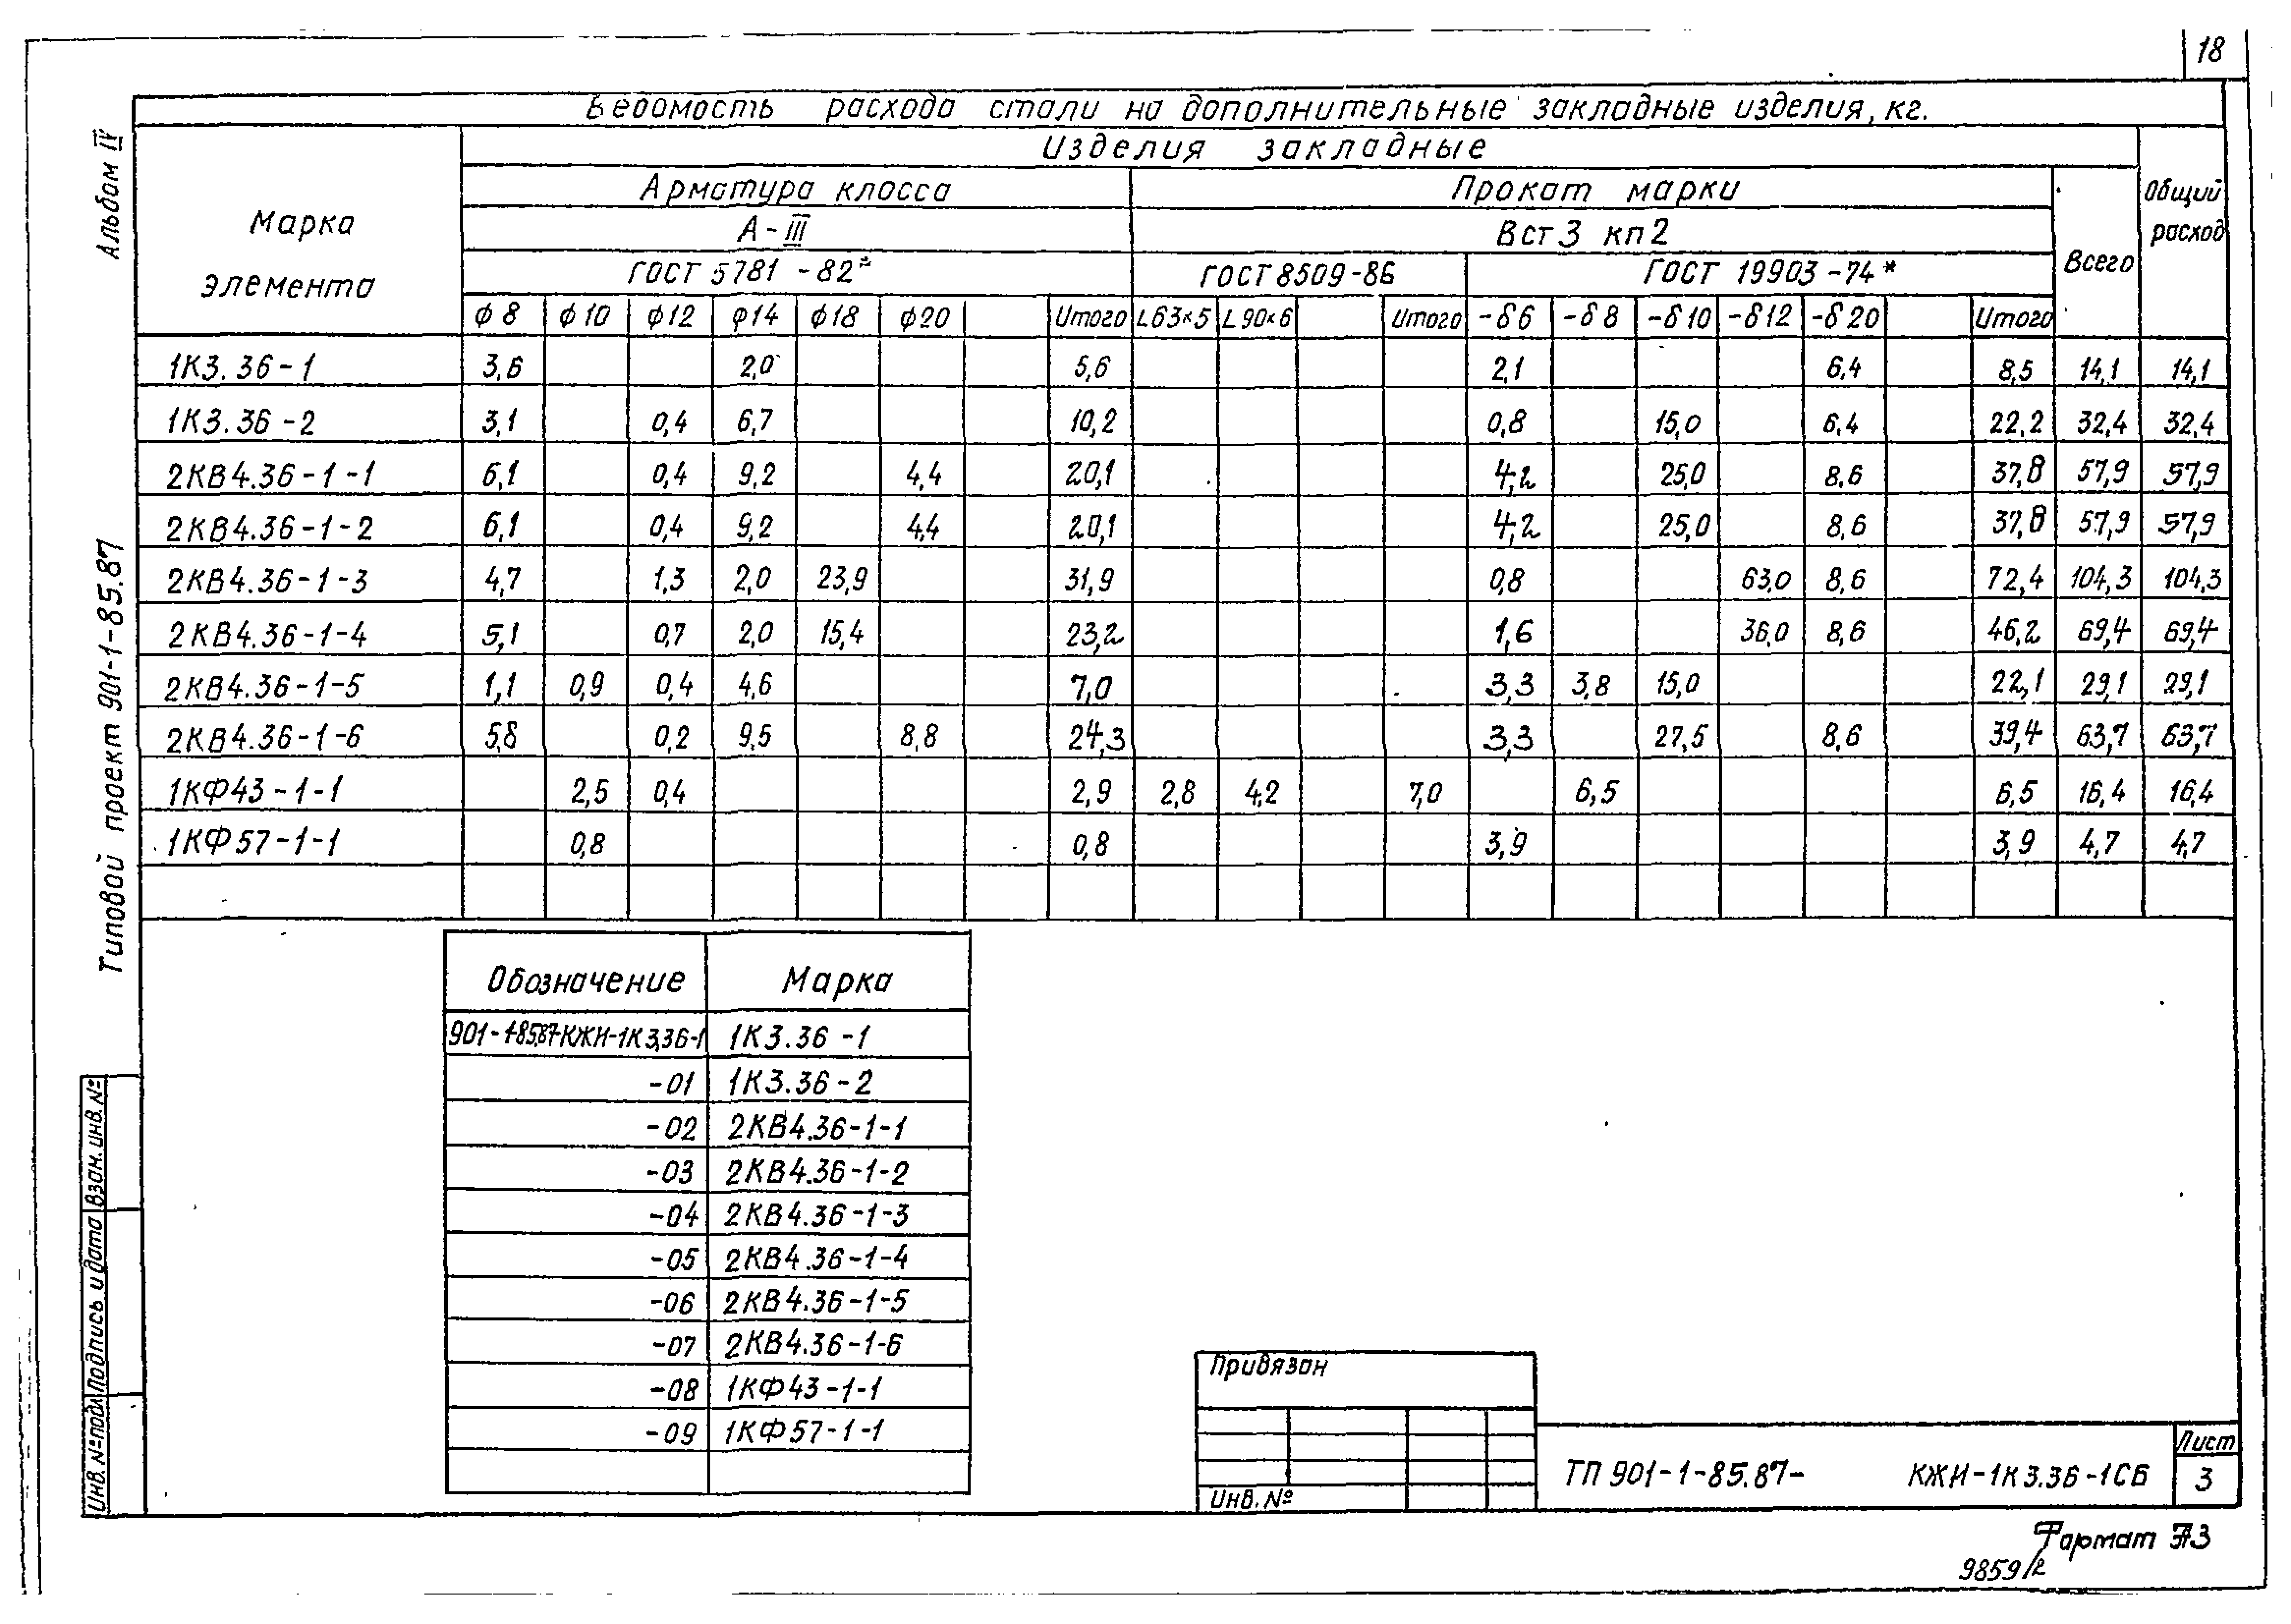 18
Ведомость расхода стали на дополнительные закладные изделия, кг.
Марка элемента
Изделия закладные
Общий расход
Арматура класса
Прокат марки
Всего
А-III
Вст3 кп2
ГОСТ 5781-82*
ГОСТ 8509-86
ГОСТ 19903-74*
ф8 ф10 ф12 ф14 ф18 ф20 Итого L63×5 L90×6 Итого -δ6 -δ8 -δ10 -δ12 -δ20 Итого
1К3.36-1 3,6 2,0 5,6 2,1 6,4 8,5 14,1 14,1
1К3.36-2 3,1 0,4 6,7 10,2 0,8 15,0 6,4 22,2 32,4 32,4
2КВ4.36-1-1 6,1 0,4 9,2 4,4 20,1 4,2 25,0 8,6 37,8 57,9 57,9
2КВ4.36-1-2 6,1 0,4 9,2 4,4 20,1 4,2 25,0 8,6 37,8 57,9 57,9
2КВ4.36-1-3 4,7 1,3 2,0 23,9 31,9 0,8 63,0 8,6 72,4 104,3 104,3
2КВ4.36-1-4 5,1 0,7 2,0 15,4 23,2 1,6 36,0 8,6 46,2 69,4 69,4
2КВ4.36-1-5 1,1 0,9 0,4 4,6 7,0 3,3 3,8 15,0 22,1 29,1 29,1
2КВ4.36-1-6 5,8 0,2 9,5 8,8 24,3 3,3 27,5 8,6 39,4 63,7 63,7
1КФ43-1-1 2,5 0,4 2,9 2,8 4,2 7,0 6,5 6,5 16,4 16,4
1КФ57-1-1 0,8 0,8 3,9 3,9 4,7 4,7
Обозначение Марка
901-1-85.87-КЖИ-1К3.36-1 1К3.36-1
-01 1К3.36-2
-02 2КВ4.36-1-1
-03 2КВ4.36-1-2
-04 2КВ4.36-1-3
-05 2КВ4.36-1-4
-06 2КВ4.36-1-5
-07 2КВ4.36-1-6
-08 1КФ43-1-1
-09 1КФ57-1-1
Альбом IV
Типовой проект 901-1-85.87
Взам. инв. №
Подпись и дата
Инв. № подл
Привязан
Инв. №
ТП 901-1-85.87- КЖИ-1К3.36-1СБ
Лист
3
Формат А3
9859/2